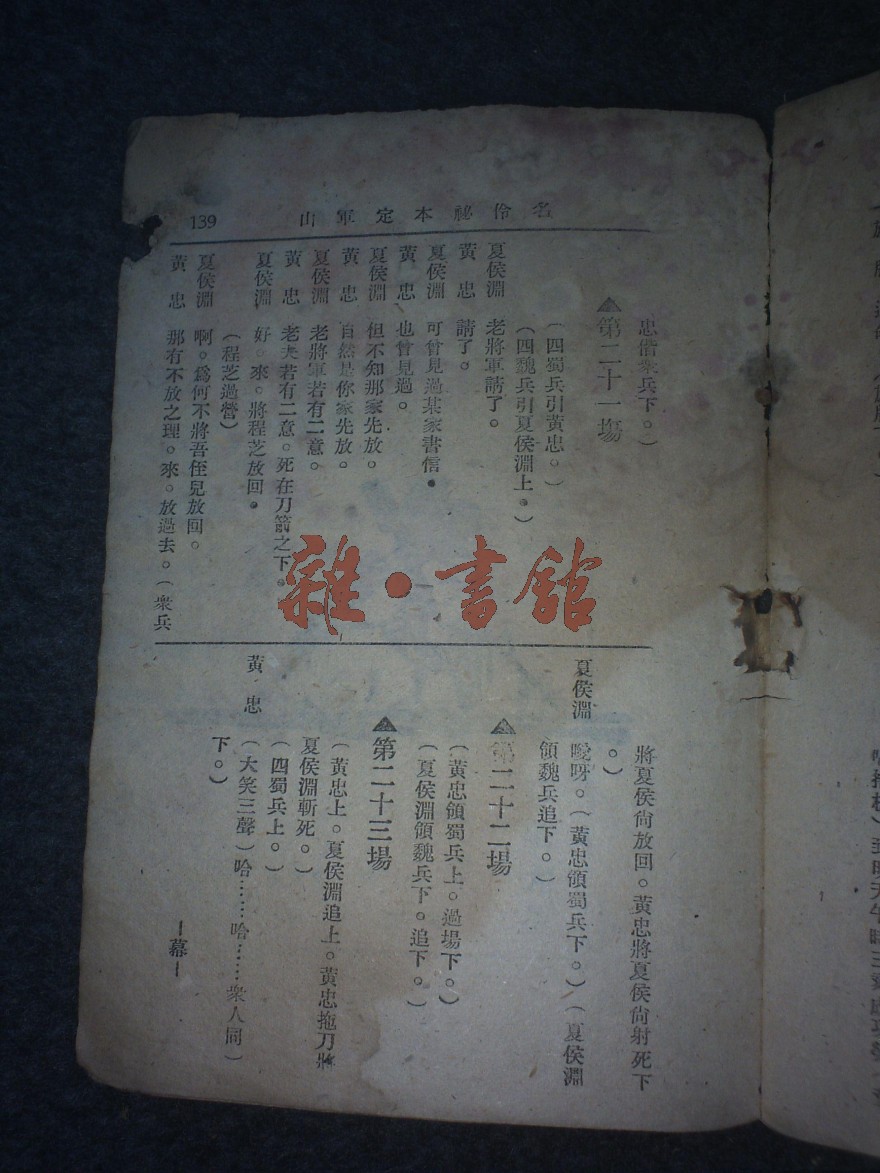 名伶祕本定軍山
139
忠偕衆兵下。)
▲第二十一塲
(四蜀兵引黃忠。)
(四魏兵引夏侯淵上。)
夏侯淵 老將軍請了。
黃忠 請了。
夏侯淵 可曾見過某家書信。
黃忠 也曾見過。
夏侯淵 但不知那家先放。
黃忠 自然是你家先放。
夏侯淵 老將軍若有二意。
黃忠 老夫若有二意。死在刀箭之下。
夏侯淵 好。來。將程芝放回。
(程芝過營)
夏侯淵 啊。爲何不將吾侄兒放回。
黃忠 那有不放之理。來。放過去。(衆兵
將夏侯尙放回。黃忠將夏侯尙射死下
。)
夏侯淵 噯呀。(黃忠領蜀兵下。)(夏侯淵
領魏兵追下。)
▲第二十二場
(黃忠領蜀兵上。過場下。)
(夏侯淵領魏兵下。追下。)
▲第二十三場
(黃忠上。夏侯淵追上。黃忠拖刀將
夏侯淵斬死。)
(四蜀兵上。)
黃忠 (大笑三聲)哈……哈……衆人同)
下。)
—幕—
雜·書館